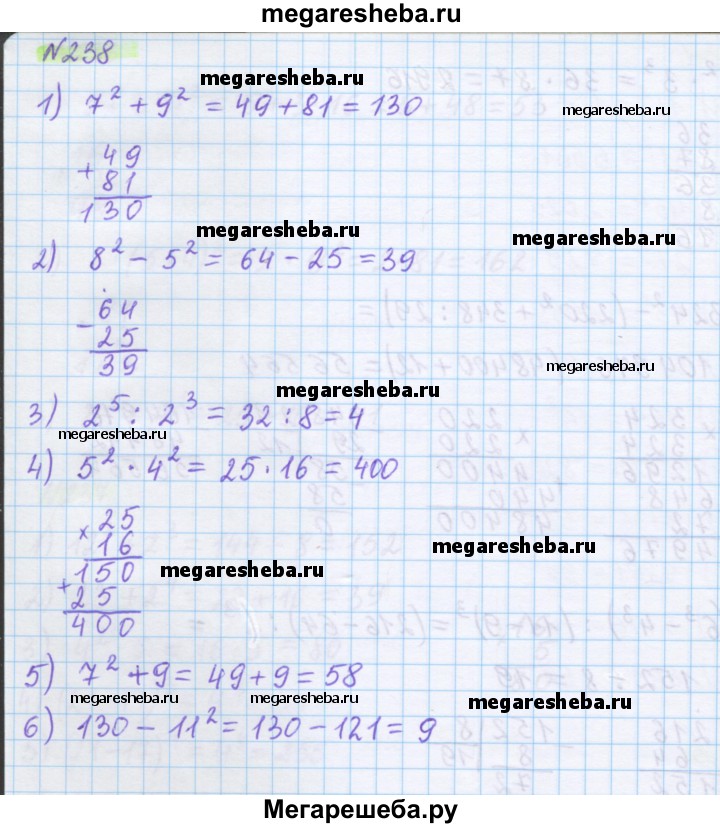 megaresheba.ru
№238
megaresheba.ru
1) 7² + 9² = 49 + 81 = 130
megaresheba.ru
+ 49
81
130
megaresheba.ru
megaresheba.ru
2) 8² - 5² = 64 - 25 = 39
- 64
25
39
megaresheba.ru
megaresheba.ru
3) 2⁵ : 2³ = 32 : 8 = 4
megaresheba.ru
4) 5² · 4² = 25 · 16 = 400
× 25
16
150
+ 25
400
megaresheba.ru
megaresheba.ru
5) 7² + 9 = 49 + 9 = 58
megaresheba.ru
megaresheba.ru
megaresheba.ru
6) 130 - 11² = 130 - 121 = 9
Мегарешеба.ру